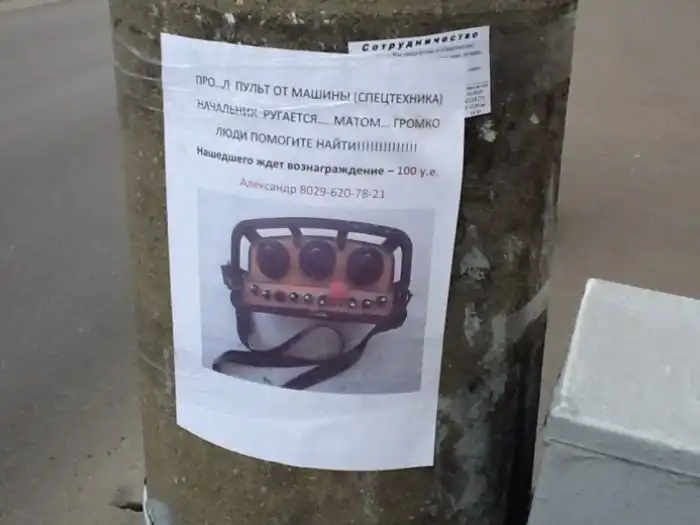 Сотрудничество
ПРО...Л ПУЛЬТ ОТ МАШИНЫ (СПЕЦТЕХНИКА)
НАЧАЛЬНИК РУГАЕТСЯ..... МАТОМ... ГРОМКО
ЛЮДИ ПОМОГИТЕ НАЙТИ!!!!!!!!!!!!!!
Нашедшего ждет вознаграждение – 100 у.е.
Александр 8029-620-78-21